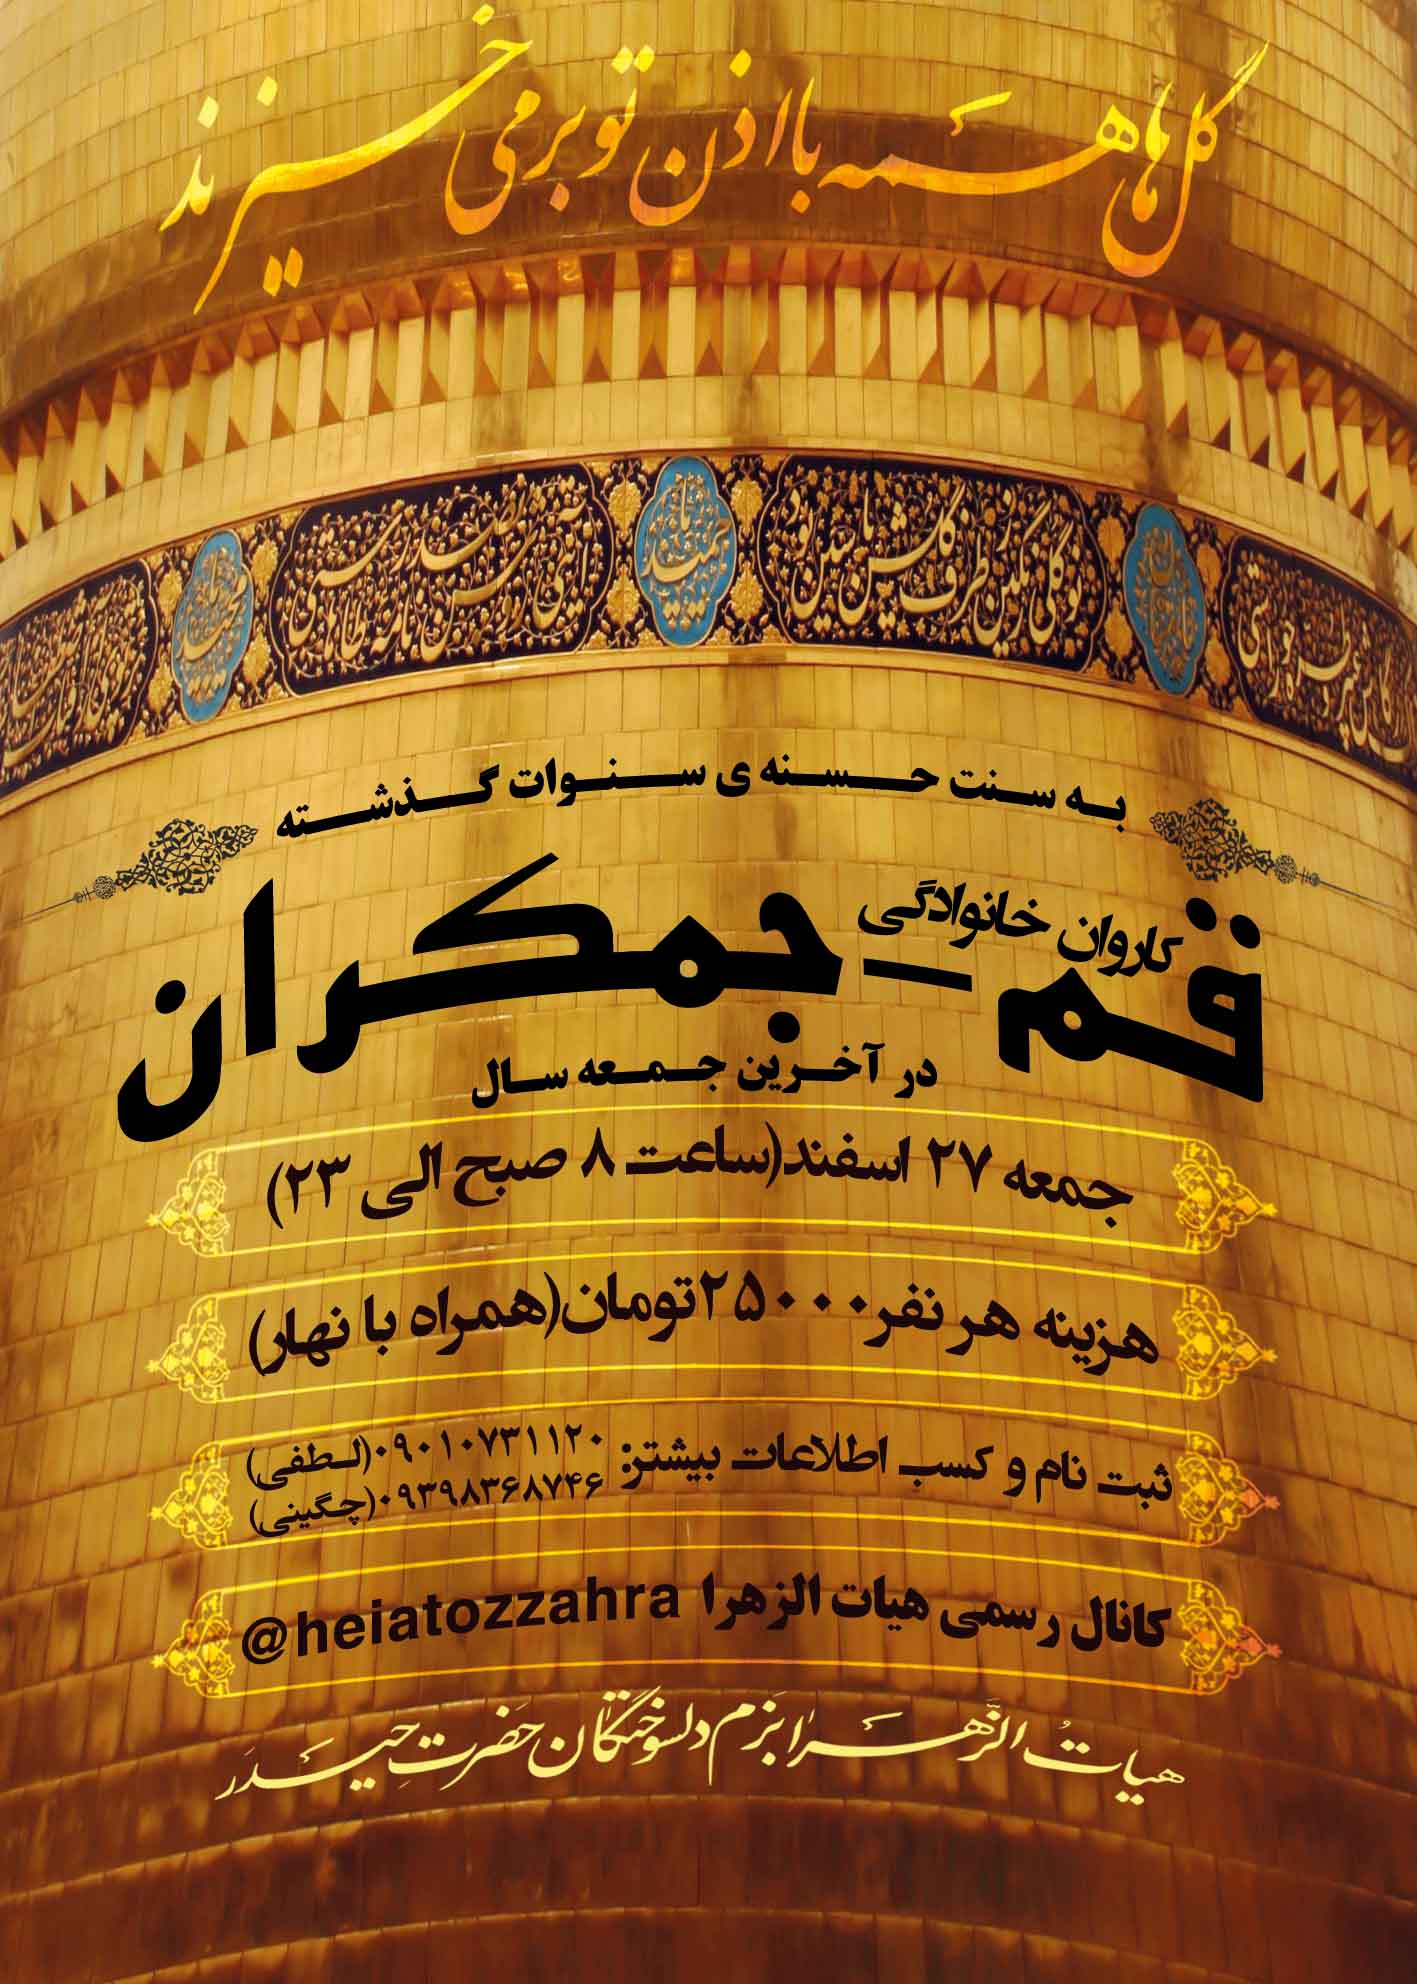 گل ها همه با اذن تو برمی خیزند
به سنت حسنه ی سنوات گذشته
کاروان خانوادگی
قم - جمکران
در آخرین جمعه سال
جمعه ۲۷ اسفند(ساعت ۸ صبح الی ۲۳)
هزینه هر نفر۲۵۰۰۰تومان(همراه با نهار)
ثبت نام و کسب اطلاعات بیشتر: ۰۹۰۱۰۷۳۱۱۲۰(لطفی)
۰۹۳۹۸۳۶۸۷۴۶(چگینی)
کانال رسمی هیات الزهرا @heiatozzahra
هیات الزهرا بزم دلسوختگان حضرت حیدر